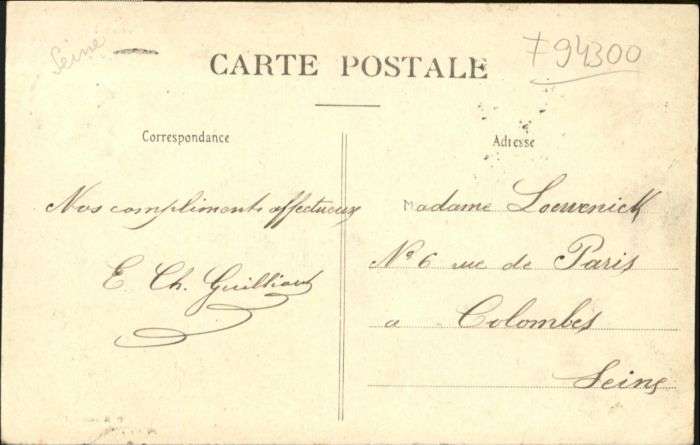 Seine
794300
CARTE POSTALE
Correspondance
Nos compliments affectueux
E. Ch. Guilliaut
Adresse
Madame Loewenick
Nº 6 rue de Paris
a Colombes
Seine